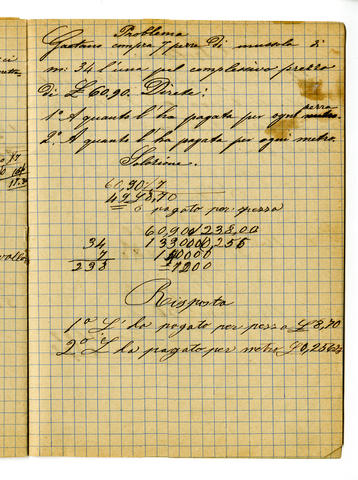 Problema
Gaetano compra 7 pezze di mussola di
m: 34 l'una pel complessivo prezzo
di £ 60,90. Direte:
1º A quanto l'ha pagata per ogni pezza metro.
2º A quanto l'ha pagata per ogni metro.
Soluzione.
60,90/7
49 £ 8,70
= è pagato per pezza
60,90/238,00
34 133000 0,255
7 140000
238 =7200
Risposta
1º L'ha pagato per pezza £ 8,70
2º L'ha pagato per metro £ 0,255